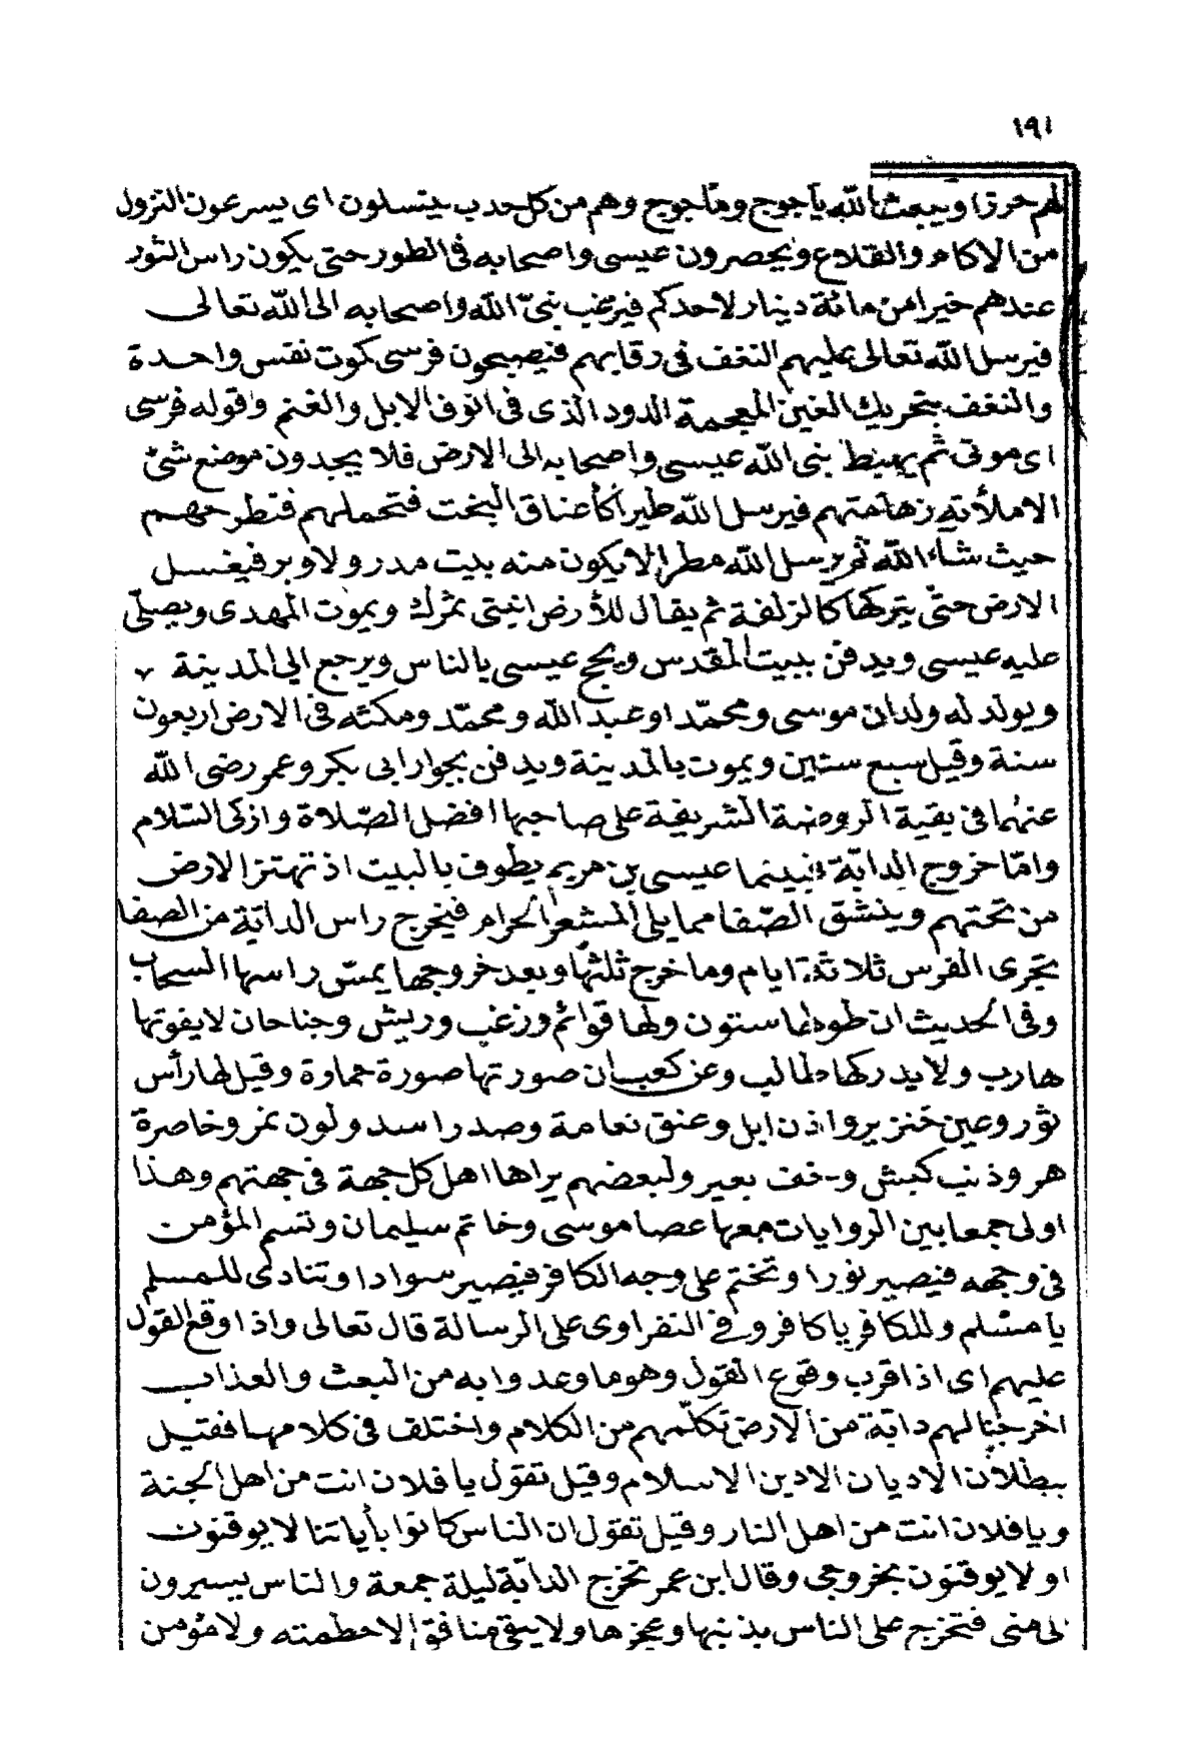 ١٩١
لهم حرزا ويبعث الله يأجوج ومأجوج وهم من كل حدب ينسلون اى يسرعون النزول
من الاكام والقلاع ويحصرون عيسى واصحابه فى الطور حتى يكون راس الثور
عندهم خيرا من مائة دينار لاحدكم فيرغب نبىّ الله واصحابه الى الله تعالى
فيرسل الله تعالى عليهم النغف فى رقابهم فيصبحون فرسى كموت نفس واحدة
والنغف بتحريك الغين المعجمة الدود الذى فى انوف الابل والغنم وقوله فرسى
اى موتى ثم يهبط نبى الله عيسى واصحابه الى الارض فلا يجدون موضع شئ
الا ملأته زهامتهم فيرسل الله طيرا كأعناق البخت فتحملهم فتطرحهم
حيث شاء الله ثم يرسل الله مطرا لا يكون منه بيت مدر ولا وبر فيغسل
الارض حتّى يتركها كالزلفة ثم يقال للأرض انبتى ثمرك ويموت المهدى ويصلّى
عليه عيسى ويدفن ببيت المقدس ويحج عيسى بالناس ويرجع الى المدينة
ويولد له ولدان موسى ومحمّد او عبد الله ومحمّد ومكثه فى الارض اربعون
سنة وقيل سبع ستين ويموت بالمدينة ويدفن بجوار ابى بكر وعمر رضى الله
عنهما فى بقية الروضة الشريفة على صاحبها افضل الصّلاة وازكى السّلام
وامّا خروج الدابّة فبينما عيسى بن مريم يطوف بالبيت اذ تهتز الارض
من تحتهم وينشق الصّفا مما يلى المشعر الحرام فيخرج راس الدابّة من الصفا
يجرى الفرس ثلاثة ايام وما خرج ثلثها وبعد خروجها يمسّ راسها السحاب
وفى الحديث ان طولها ستون ولها قوائم وزغب وريش وجناحان لا يفوتها
هارب ولا يدركها طالب وعن كعب ان صورتها صورة حمارة وقيل لها رأس
ثور وعين خنزير واذن ابل وعنق نعامة وصدر اسد ولون نمر وخاصرة
هر وذنب كبش وخف بعير ولبعضهم يراها اهل كل جهة فى جهتهم وهذا
اولى جمعا بين الروايات معها عصا موسى وخاتم سليمان وتسم المؤمن
فى وجهه فيصير نورا وتختم على وجه الكافر فيصير سوادا وتنادى للمسلم
يا مسلم وللكافر يا كافر وفى النفراوى على الرسالة قال تعالى واذا وقع القول
عليهم اى اذا قرب وقوع القول وهو ما وعدوا به من البعث والعذاب
اخرجنا لهم دابّة من الارض تكلّمهم من الكلام واختلف فى كلامها فقيل
ببطلان الاديان الا دين الاسلام وقيل تقول يا فلان انت من اهل الجنة
ويا فلان انت من اهل النار وقيل تقول ان الناس كانوا بأياتنا لا يوقنون
او لا يوقنون بخروجى وقال ابن عمر تخرج الدابّة ليلة جمعة والناس يسيرون
لى منى فتخرج على الناس بذنبها وعجزها ولا يبقى منافق الا حطمته ولا مؤمن